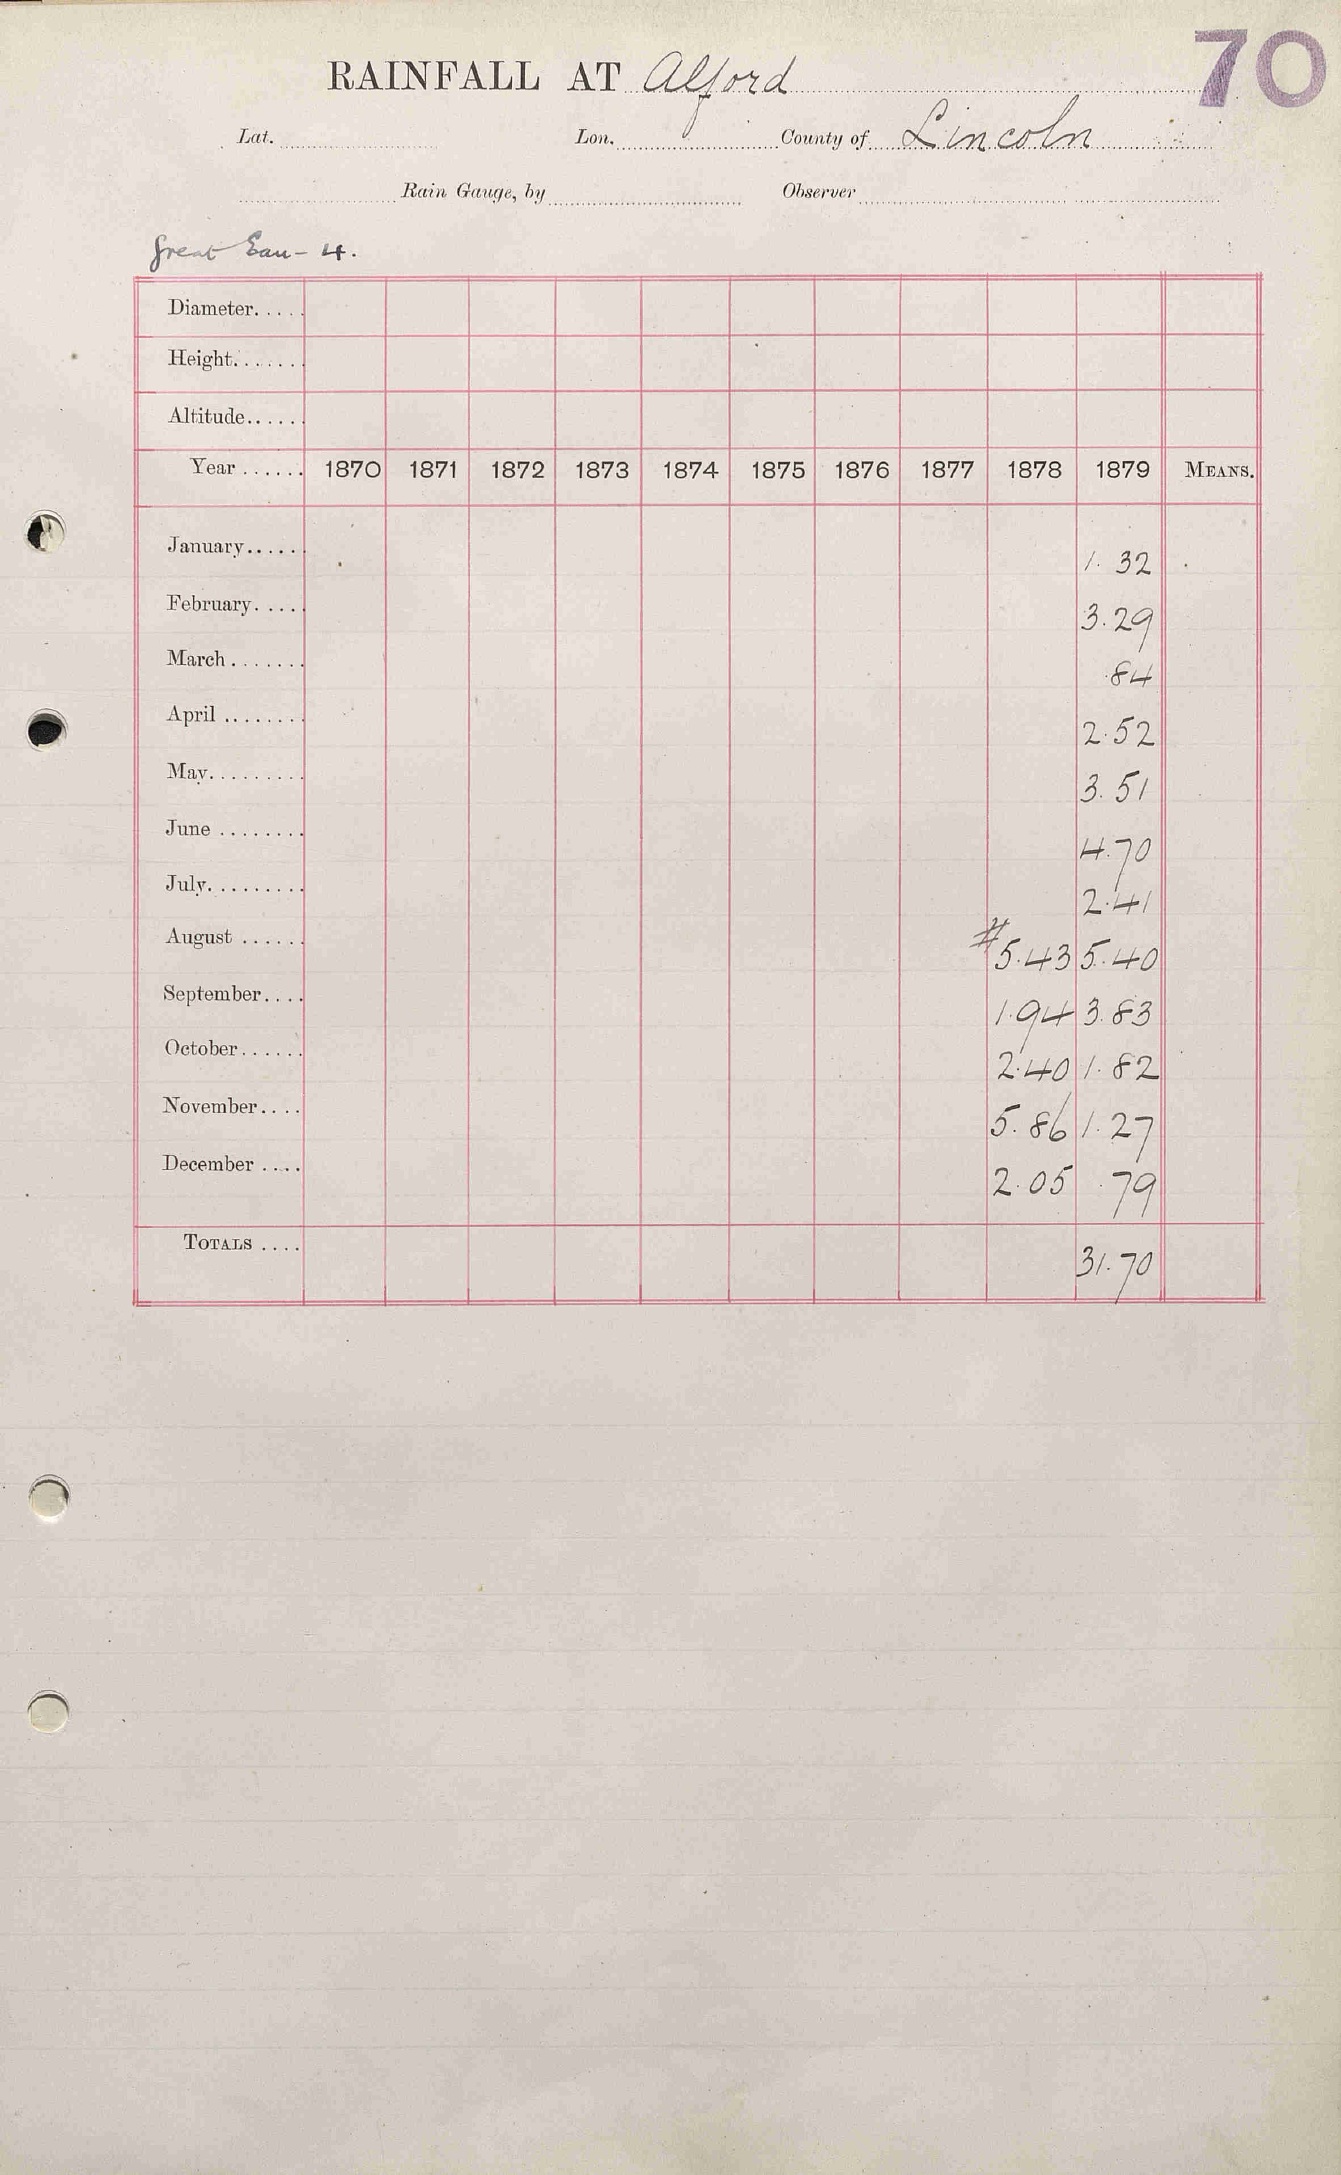 70
RAINFALL AT Alford
Lat. Lon. County of Lincoln
Rain Gauge, by Observer
Great Eau - 4.
Diameter.....
Height.......
Altitude......
Year ...... 1870 1871 1872 1873 1874 1875 1876 1877 1878 1879 MEANS.
January..... 1.32
February..... 3.29
March....... .84
April ........ 2.52
May......... 3.51
June ........ 4.70
July......... 2.41
August ...... # 5.43 5.40
September.... 1.94 3.83
October...... 2.40 1.82
November.... 5.86 1.27
December .... 2.05 .79
TOTALS .... 31.70